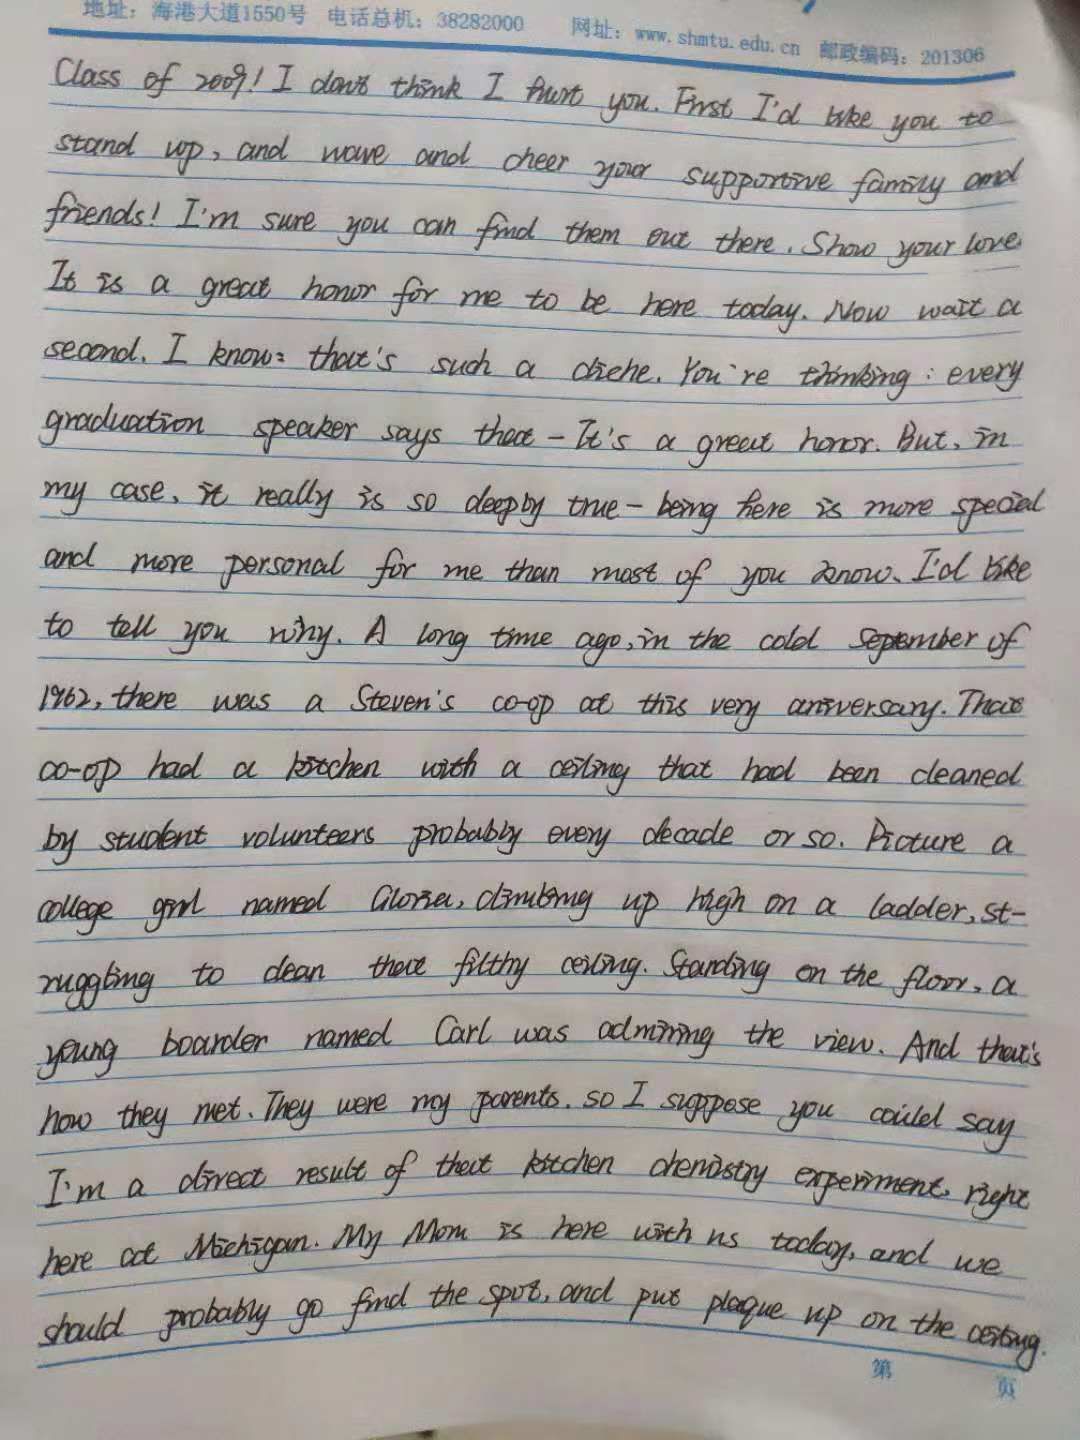 地址：海港大道1550号 电话总机：38282000 网址：www.shmtu.edu.cn 邮政编码：201306
Class of 2009! I don't think I hurt you. First I'd like you to
stand up, and wave and cheer your supportive family and
friends! I'm sure you can find them out there. Show your love.
It is a great honor for me to be here today. Now wait a
second. I know: that's such a cliche. You're thinking: every
graduation speaker says that - It's a great honor. But, in
my case, it really is so deeply true - being here is more special
and more personal for me than most of you know. I'd like
to tell you why. A long time ago, in the cold September of
1962, there was a Steven's co-op at this very aniversary. That
co-op had a kitchen with a ceiling that had been cleaned
by student volunteers probably every decade or so. Picture a
college girl named Gloria, climbing up high on a ladder, st-
ruggling to clean that filthy ceiling. Standing on the floor, a
young boarder named Carl was admiring the view. And that's
how they met. They were my parents. so I suppose you could say
I'm a direct result of that kitchen chemistry experiment. right
here at Michigan. My Mom is here with us today, and we
should probably go find the spot, and put plaque up on the ceiling.
第 页